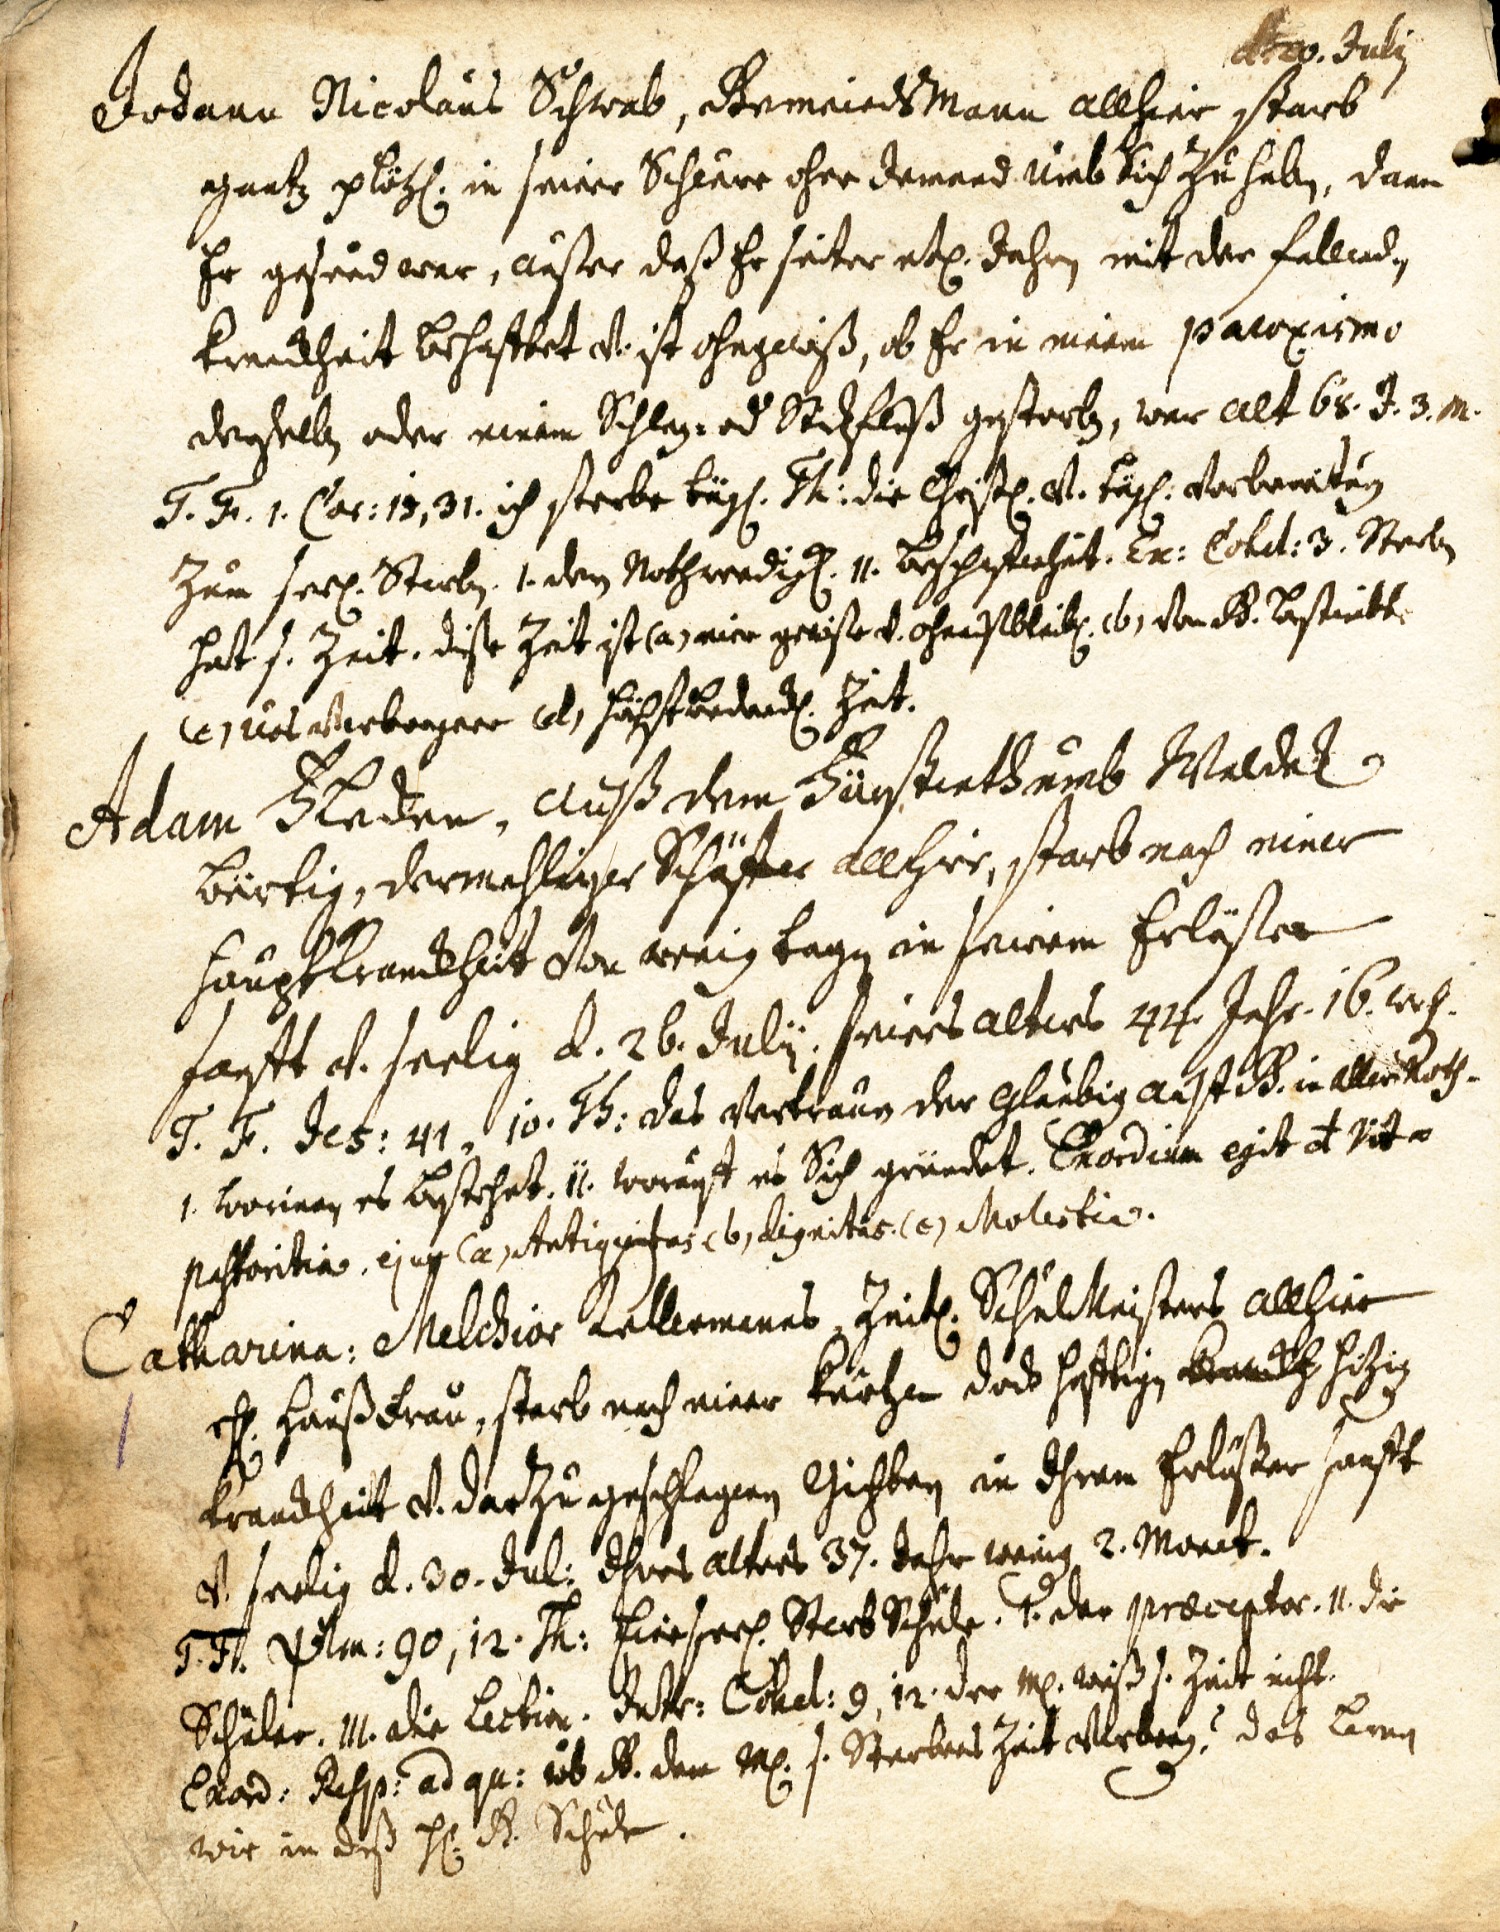 d. 20. Julij
Johann Nicolaus Schwab, GemeindsMann allhier starb
gantz plötzl. in seiner Scheure ohne Jemand umb Sich zu haben, dann
Er gesund war, außer daß Er seiter etl. Jahren mit der fallend.
Kranckheit behafftet v. ist ohngewiß, ob Er in einem paroxismo
derselben oder einem Schlag- od Steckfluß gestorben, war alt 68. J. 3. M.
T. F. 1. Cor: 15, 31. ich sterbe tägl. Th: die Christl. v. tägl. Vorbereitung
Zum seel. Sterben. 1. dero Nothwendigk. 11. Beschaffenheit. Ex: Cohel: 3. Sterben
hat s. Zeit. diße Zeit ist (a) eine gewiße v. ohnausbleibl. (b) von G. bestimte
(c) uns verborgene (d) höchst bedenckl. Zeit.
Adam, auß dem Fürstenthumb Waldeck
bürtig, dermahliger Schäffer allhier, starb nach einer
Hauptkranckheit von wenig tagen in seinem Erlößer
sanfft v. seelig d. 26. Julij. seines alters 44. Jahr. 16. wch.
T. F. Jes: 41, 10. Th: das Vertrauen der Glaubig auff G. in aller Noth.
1. worinnen es bestehet. 11. worauff es Sich gründet. Exordium egit de vita
pastoritia, ejus (a) Antiquitas (b) dignitas. (c) Molestia.
Catharina: Melchior Kellermanns, Zeitl. SchulMeisters allhier
ehl. HaußFrau, starb nach einer kurtzen doch hefftigen hitzig
Kranckheit v. darzu geschlagenen Gichtern in Ihrem Erlößer sanfft
v. seelig d. 30. Jul: Ihres alters 37. Jahr wenig 2. Monat.
T. F. Psalm: 90, 12. Th: Eine seel. SterbSchule. 1. der præceptor. 11. die
Schüler. 111. die Lection. Intr: Cohel: 9, 12. der M. weiß s. Zeit nicht.
Exord: Resp: ad qu: wo G. dem M. s. Sterbens Zeit Verborg.? das lernen
wir in deß G. Schule.